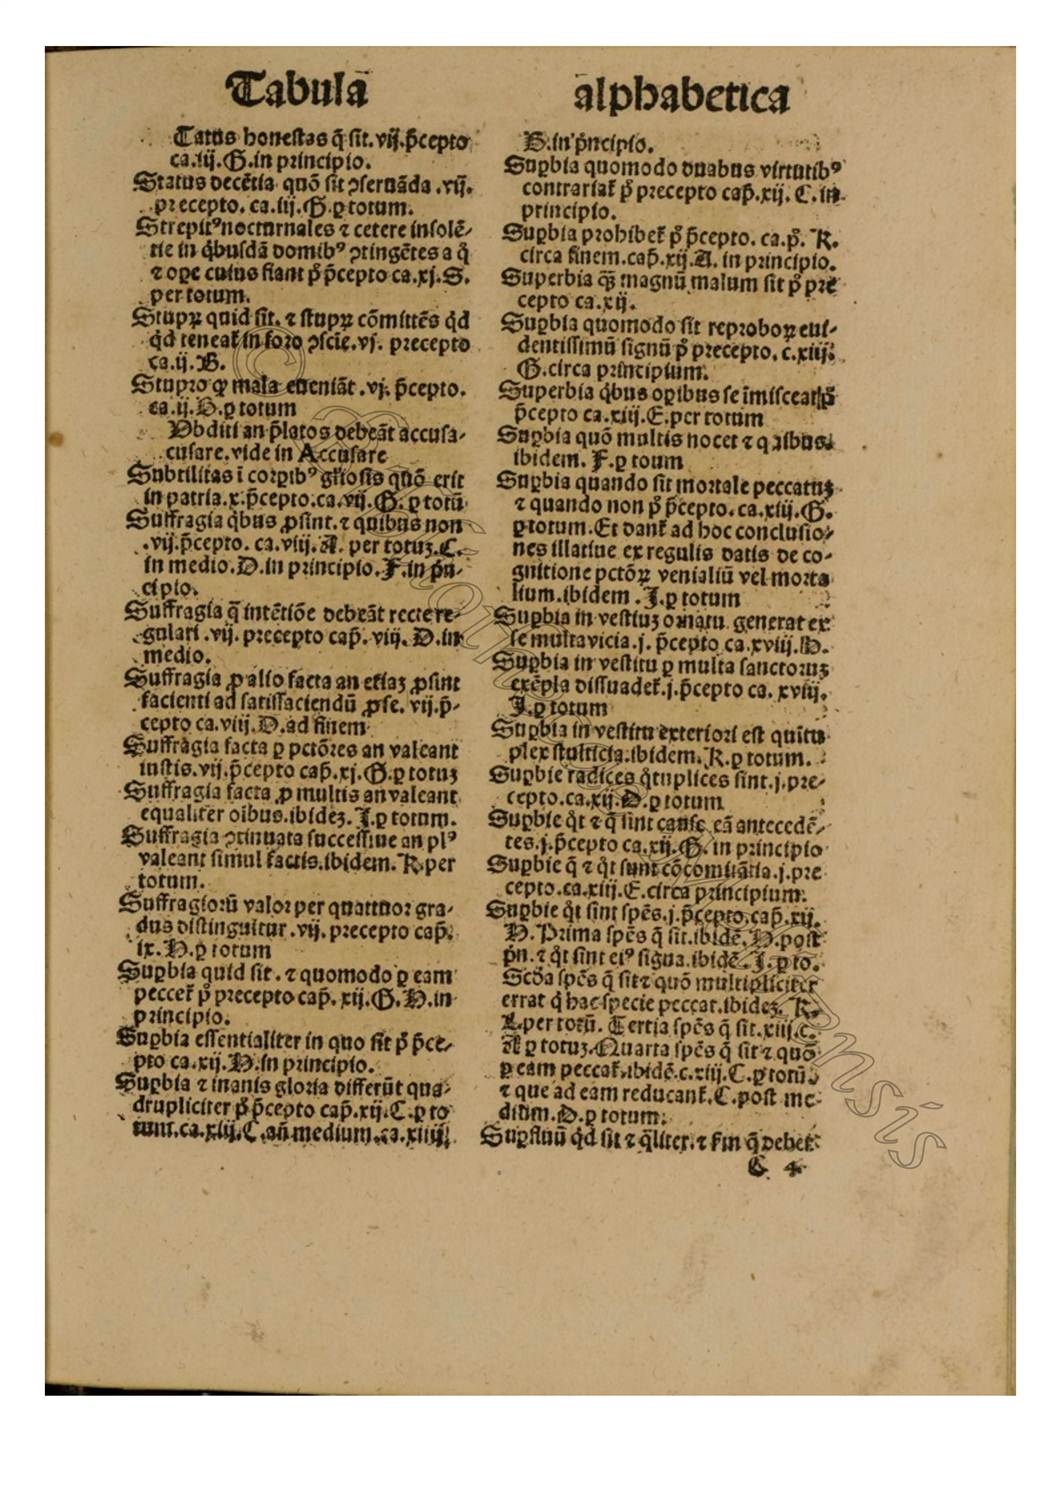 Tabulā alphabetica
Tatus honestas q̄ sit. vij. p̄cepto
ca.iij. G. in principio.
Status decētia quō sit ꝯseruāda .vij.
precepto. ca.iij. G. ꝑ totum.
Strepitꝰ nocturnales ⁊ cetere insolē-
tie in q̇busdā domibꝰ ꝯtingētes a q̇
⁊ ope cuius fiant pͦ p̄cepto ca.xj. S.
per totum.
Stupꝝ quid sit. ⁊ stupꝝ cōmittēs qd̓
qd̓ teneat̄ in foro ꝯscie. vj. precepto
ca.ij. B.
Stupro ꝙ mala eueniāt .vj. p̄cepto.
ca.ij. D. ꝑ totum
Vbditi an p̄latos debeāt accusa-
cusare. vide in Accusare
Subtilitas ī corꝑibꝰ gl̄iosis quō erit
in patria. x. p̄cepto. ca. vij. G. ꝑ totū
Suffragia q̇bus ꝓsint. ⁊ quibus non
.vij. p̄cepto. ca. viij. A. per totuꝫ. C.
in medio. D. in principio. F. in pn̄-
cipio.
Suffragia q̄ intētiōe debeāt recte re-
gulari .vij. precepto cap̄. viij. D. in
medio.
Suffragia ꝓ alio facta an etiaꝫ ꝓsint
facienti ad satisfaciendū ꝓ se. vij. p̄-
cepto ca. viij. D. ad finem
Suffragia facta ꝑ pctōres an valeant
iustis. vij. p̄cepto cap̄. xj. G. ꝑ totuꝫ
Suffragia facta ꝓ multis an valeant
equaliter oībus. ibideꝫ. J. ꝑ totum.
Suffragia ꝯtinuata successiue an plꝰ
valeant simul factis. ibidem. K. per
totum.
Suffragiorū valor per quattuor gra-
dus distinguitur .vij. precepto cap̄.
ix. H. ꝑ totum
Suꝑbia quid sit . ⁊ quomodo ꝑ eam
peccet̄ pͦ precepto cap̄. xij. G. H. in
principio.
Suꝑbia essentialiter in quo sit pͦ p̄ce-
pto ca.xij. H. in principio.
Suꝑbia ⁊ inanis gloria differūt qua-
drupliciter pͦ p̄cepto cap̄. xij. C. ꝑ to
tum. ca. xiij. C. an̄ medium. ca. xiiij.
B. in pͥncipio.
Suꝑbia quomodo duabus virtutibꝰ
contrariat̄ pͦ precepto cap̄. xij. C. in
principio.
Suꝑbia prohibet̄ pͦ p̄cepto. ca. pͦ. K.
circa finem. cap̄. xij. A. in principio.
Superbia qꝫ magnū malum sit pͦ pre
cepto ca. xij.
Suꝑbia quomodo sit reproboꝝ eui-
dentissimū signū pͦ precepto. c. xiij.
G. circa principium.
Superbia q̇bus oꝑibus se īmisceat pͦ
p̄cepto ca. xiij. E. per totum
Suꝑbia quō multis nocet ⁊ quibus.
ibidem. F. ꝑ toum
Suꝑbia quando sit mortale peccatuꝫ
⁊ quando non pͦ p̄cepto. ca. xiij. G.
ꝑ totum. Et dant̄ ad hoc conclusio-
nes illatiue ex regulis datis de co-
gnitione pctōꝝ venialiū vel morta
lium. ibidem . J. ꝑ totum
Suꝑbia in vestiuꝫ ornatu generat ex
se multa vicia. j. p̄cepto ca. xviij. H.
Suꝑbia in vestitu ꝑ multa sanctoruꝫ
exēpla dissuadet̄. j. p̄cepto ca. xviij.
J. ꝑ totum
Suꝑbia in vestitu exteriori est quītu
plex stulticia. ibidem. K. ꝑ totum.
Suꝑbie radices q̇tuplices sint. j. pre-
cepto. ca. xij. D. ꝑ totum
Suꝑbie q̇t ⁊ q̄ sint cause eā antecedē-
tes. j. p̄cepto ca. xij. G. in principio
Suꝑbie q̄ ⁊ q̇t sunt cōcomitātia. j. pre
cepto. ca. xiij. E. circa principium.
Suꝑbie q̇t sint spēs. j. p̄cepto. cap̄. xij.
H. Prima spēs q̄ sit. ibidē. H. post
pn̄. ⁊ q̇t sint eiꝰ signa. ibidē. J. ꝑ to.
Scd̓a spēs q̄ sit ⁊ quō multipliciter
errat q̇ hac specie peccat. ibideꝫ. K.
L. per totū. Tertia spēs q̄ sit. xiij. c.
A ꝑ totuꝫ. Quarta spēs q̄ sit ⁊ quō
ꝑ eam peccat̄. ibidē. c. xiij. C. ꝑ totū
⁊ que ad eam reducant̄. C. post me-
dium. D. ꝑ totum.
Suꝑfluū qd̓ sit ⁊ q̄liter. ⁊ fm̄ q̄ debet
C 4